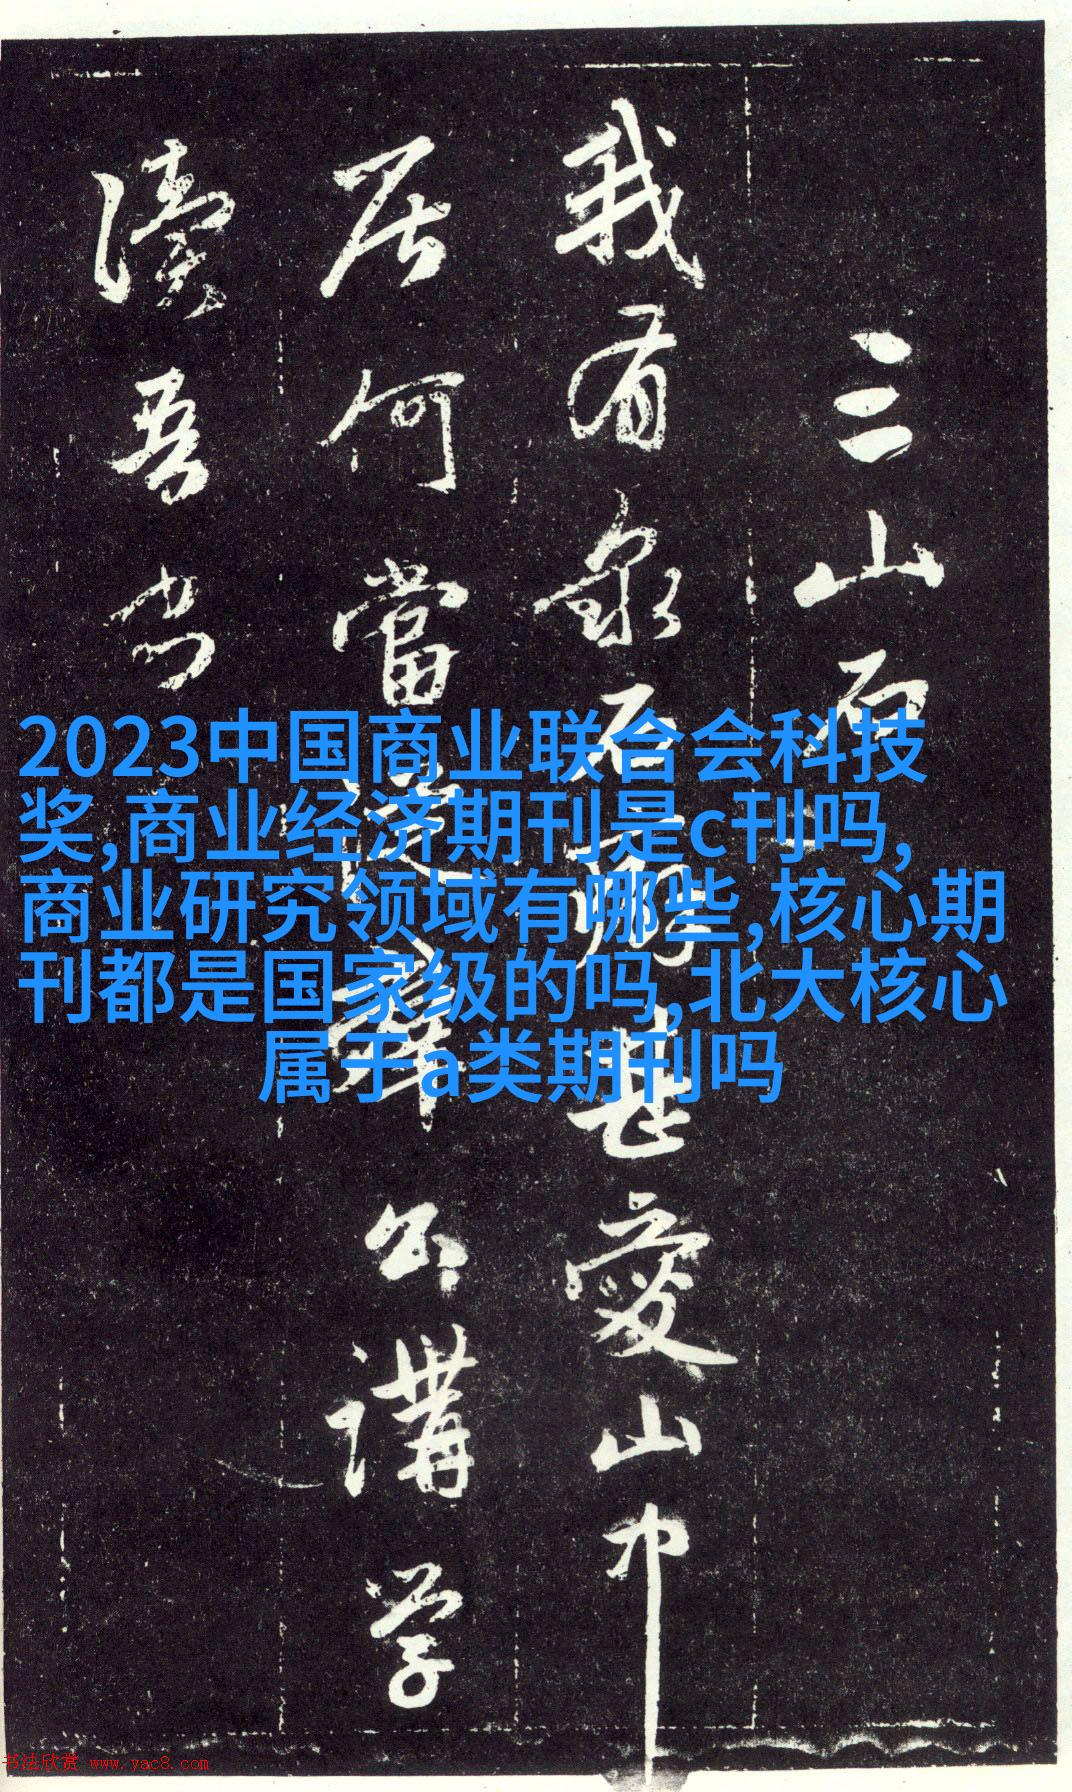 2023中国商业联合会科技
奖,商业经济期刊是c刊吗,
商业研究领域有哪些,核心期
刊都是国家级的吗,北大核心
属于a类期刊吗
三山石
我有泉石癖甚愛山中
居何當從群公講學
讀吾書
书法欣赏 www.yac8.com